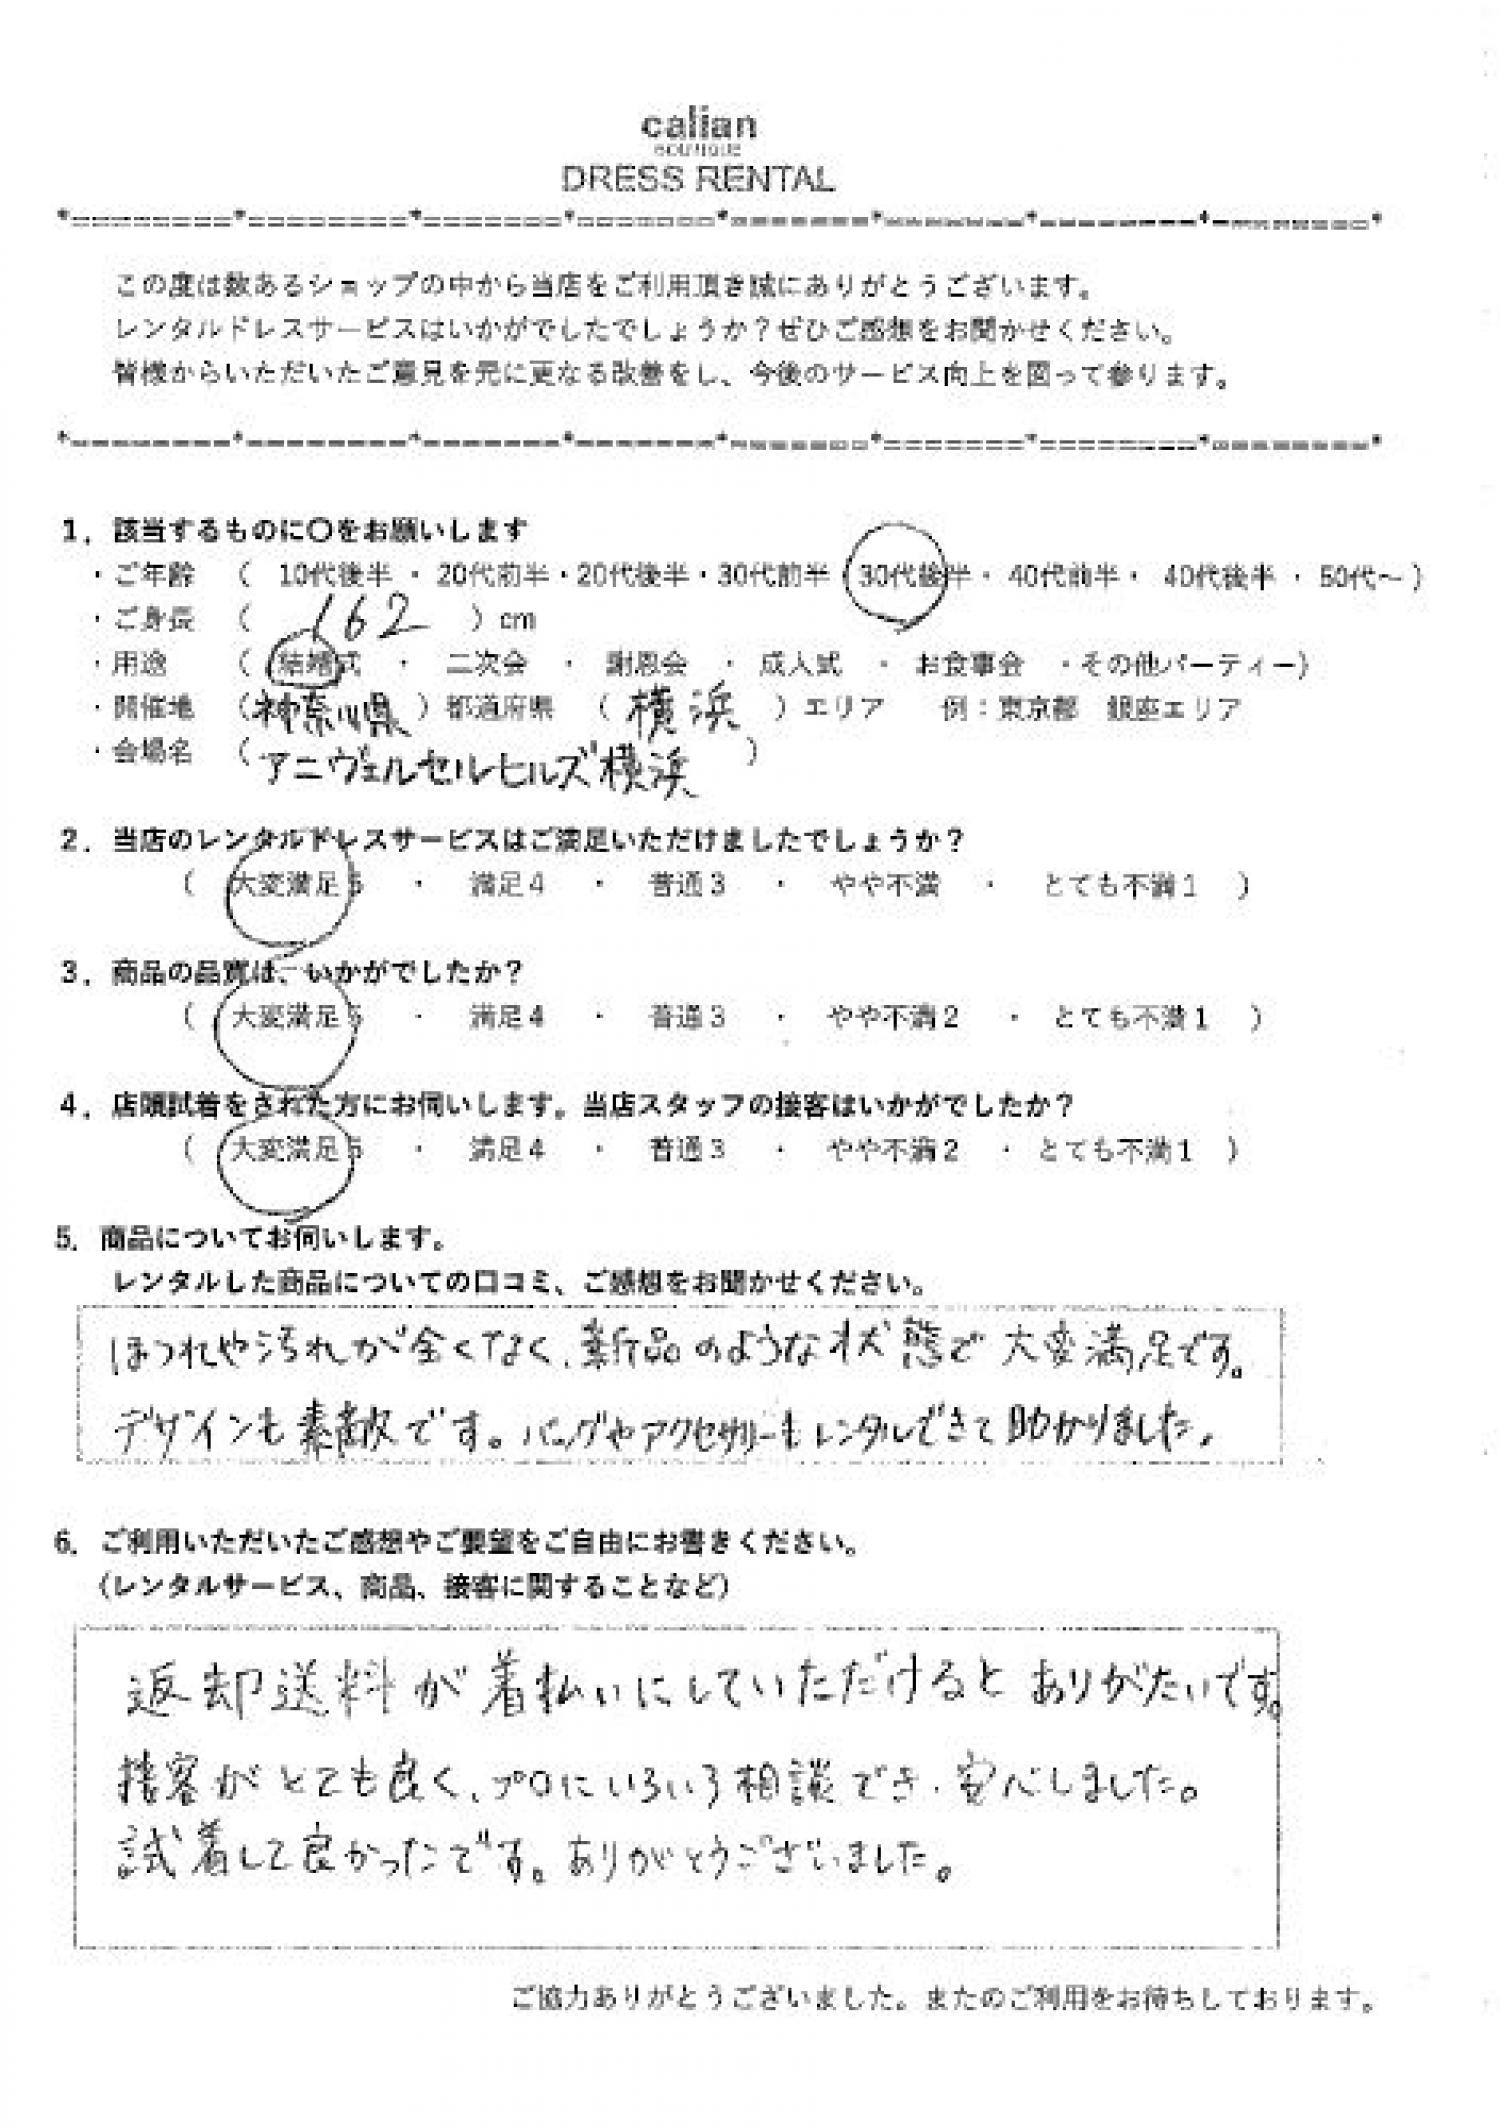 calian
BOUTIQUE
DRESS RENTAL
*========*========*=======*=======*=======*=======*========*========*
この度は数あるショップの中から当店をご利用頂き誠にありがとうございます。
レンタルドレスサービスはいかがでしたでしょうか？ぜひご感想をお聞かせください。
皆様からいただいたご意見を元に更なる改善をし、今後のサービス向上を図って参ります。
*========*========*=======*=======*=======*=======*========*========*
1．該当するものに〇をお願いします
・ご年齢 （ 10代後半 ・ 20代前半・20代後半・30代前半・30代後半・ 40代前半・ 40代後半 ・ 50代～）
・ご身長 （ 162 ）cm
・用途 （ 結婚式 ・ 二次会 ・ 謝恩会 ・ 成人式 ・ お食事会 ・その他パーティー）
・開催地 （神奈川県）都道府県 （ 横浜 ）エリア 例：東京都 銀座エリア
・会場名 （アニヴェルセルヒルズ横浜 ）
2．当店のレンタルドレスサービスはご満足いただけましたでしょうか？
（ 大変満足5 ・ 満足4 ・ 普通3 ・ やや不満 ・ とても不満1 ）
3．商品の品質は、いかがでしたか？
（ 大変満足5 ・ 満足4 ・ 普通3 ・ やや不満2 ・ とても不満1 ）
4．店頭試着をされた方にお伺いします。当店スタッフの接客はいかがでしたか？
（ 大変満足5 ・ 満足4 ・ 普通3 ・ やや不満2 ・ とても不満1 ）
5．商品についてお伺いします。
レンタルした商品についての口コミ、ご感想をお聞かせください。
ほつれや汚れが全くなく、新品のような状態で大変満足です。
デザインも素敵です。バッグやアクセサリーもレンタルできて助かりました。
6．ご利用いただいたご感想やご要望をご自由にお書きください。
（レンタルサービス、商品、接客に関することなど）
返却送料が着払いにしていただけるとありがたいです。
接客がとても良く、プロにいろいろ相談でき、安心しました。
試着して良かったです。ありがとうございました。
ご協力ありがとうございました。またのご利用をお待ちしております。